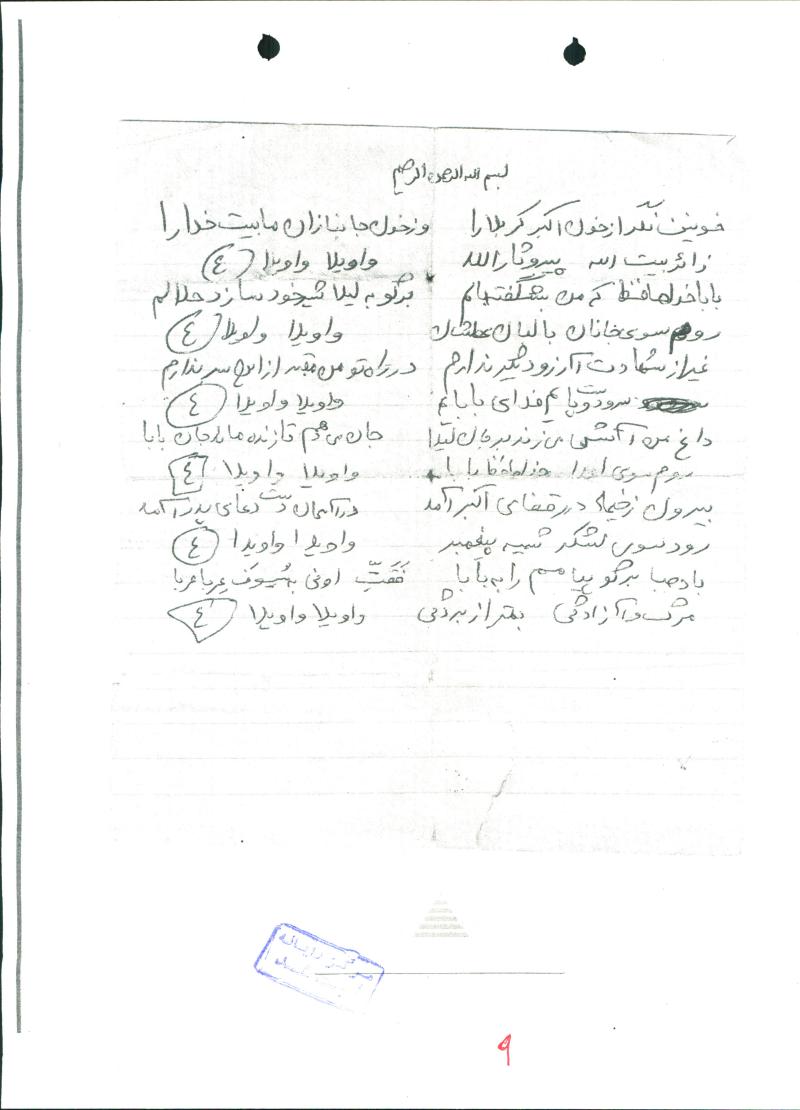 بسم الله الرحمن الرحیم
خونین نگر از خون اکبر کربلا را    وز خون جانبازان ما بیت خدا را
زائر بیت الله پیرو ثارالله    واویلا واویلا ٤
بابا خداحافظ که من    برگو به لیلا شیر خود سازد حلالم
روم سوی جانان با لبان عطشان    واویلا واویلا ٤
غیر از شهادت آرزو دیگر ندارم    در راه تو من از این سر ندارم
سر و دست و پایم فدای بابایم    واویلا واویلا ٤
داغ من آتش می زند بر جان لیلا    جان می دهم تا زنده ماند جان بابا
روم سوی اعدا خداحافظ بابا    واویلا واویلا ٤
بیرون ز خیمه در قفای اکبر آمد    در آسمان دست دعای پدر آمد
رود سوی لشگر شبیه پیغمبر    واویلا واویلا ٤
باد صبا برگو پیامم را به بابا
مرگ و آزادگی بهتر از بردگی    واویلا واویلا ٤
مرکز رایانه
۹